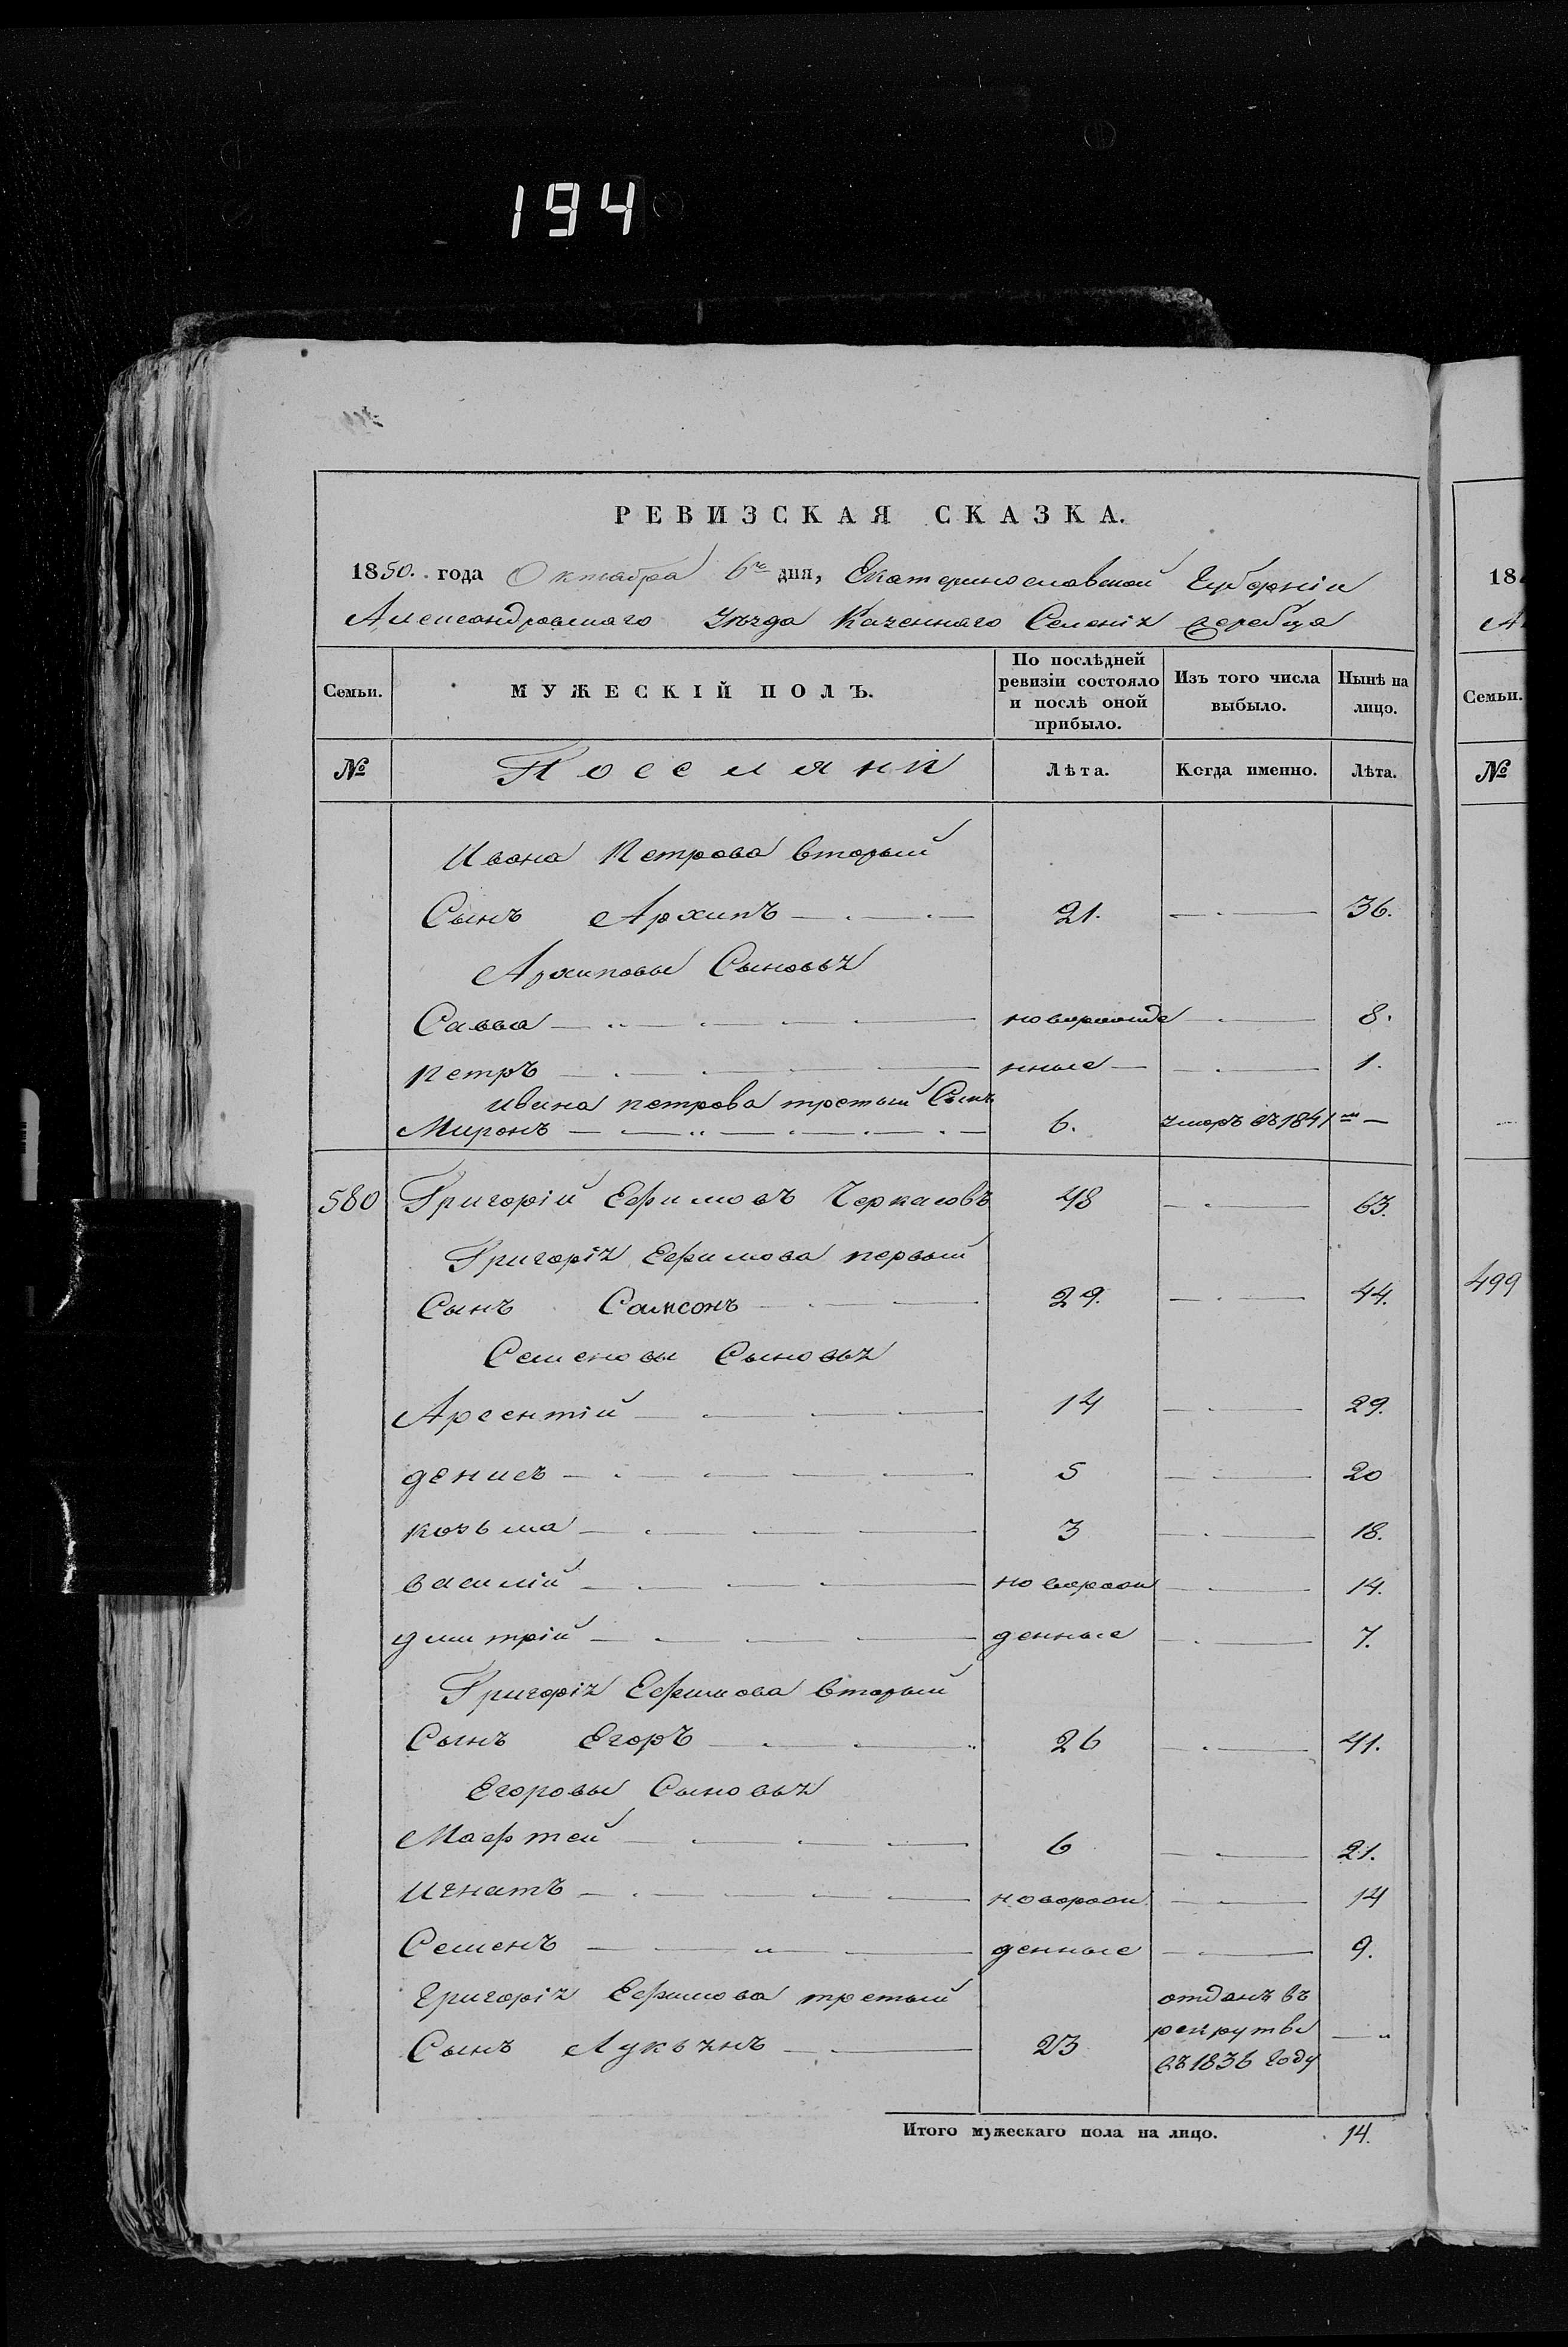 194
РЕВИЗСКАЯ СКАЗКА.
1850. года Октабра 6го дня, Екатеринославской Губернiи
Александровскаго Уезда Казеннаго Селенiя Жеребца
Семьи. МУЖЕСКІЙ ПОЛЪ. По послѣдней ревизіи состояло и послѣ оной прибыло. Изъ того числа выбыло. Нынѣ на лицо.
№ Поселяни Лѣта. Когда именно. Лѣта.
Ивана Петрова вторый
Сынъ Архипъ 21. 36.
Архиповы Сыновья
Савва новорожде 8.
петръ нные 1.
ивана петрова третый Сынъ
Миронъ 6. умеръ въ 1841 м
580 Григорій Ефимовъ Черкасовъ 48 63.
Григорія Ефимова первый
Сынъ Самсонъ 29. 44.
Семеновы Сыновья
Арсентій 14 29.
денисъ 5 20
козьма 3 18.
василій новорож 14.
дмитрій денные 7.
Григорія Ефимова вторый
Сынъ Егоръ 26 41.
Егоровы Сыновья
Мафтей 6 21.
игнатъ новорож 14
Семенъ денные 9.
григорія Ефимова третый отданъ въ
Сынъ Лукьянъ 23 рекрутвы
въ 1836 году
Итого мужескаго пола на лицо. 14.
18
А
Семьи.
№
499